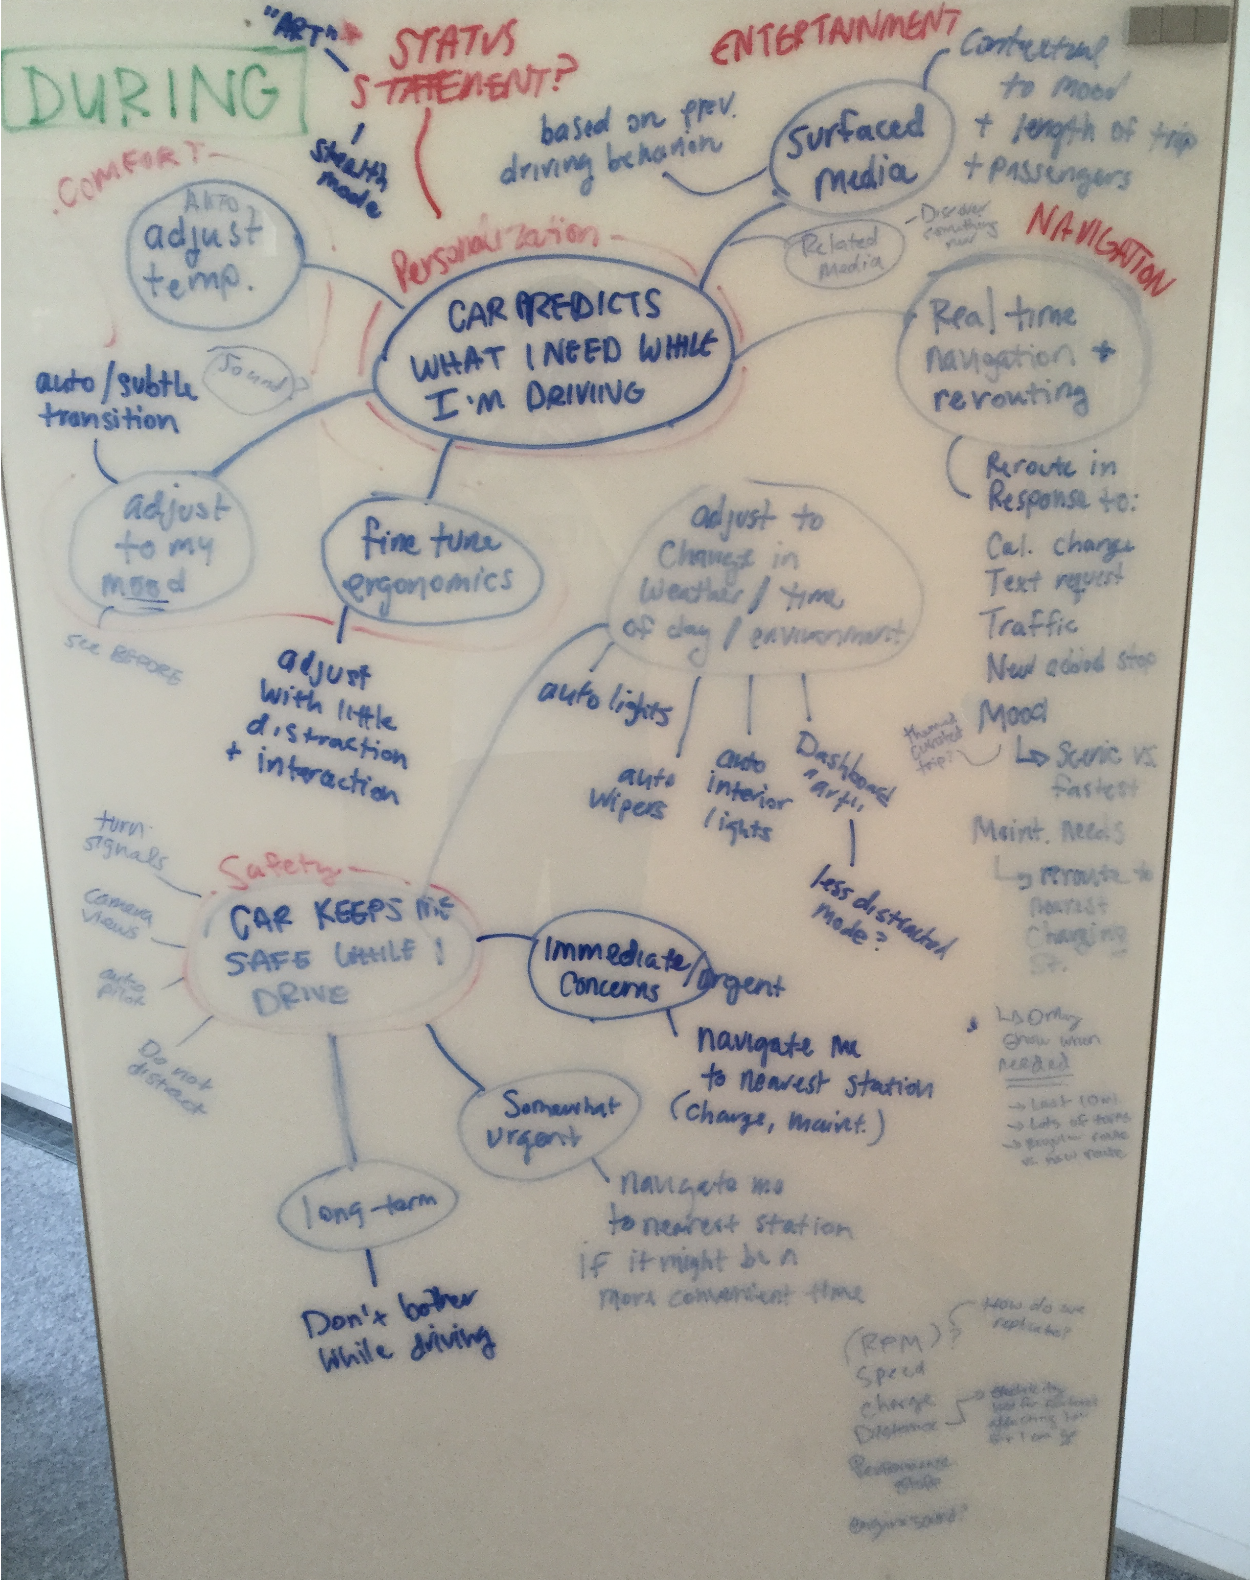 DURING
"ART"
STATUS
STATEMENT?
stealth
mode
ENTERTAINMENT
Surfaced
media
Contextual
to mood
+ length of trip
+ passengers
based on prev.
driving behavior
Related
media
- Discover
something
new
COMFORT
AUTO
adjust
temp.
Personalization
CAR PREDICTS
WHAT I NEED WHILE
I'M DRIVING
Sound?
auto/subtle
transition
adjust
to my
mood
see BEFORE
fine tune
ergonomics
adjust
with little
distraction
+ interaction
NAVIGATION
Real time
navigation +
rerouting
Reroute in
Response to:
Cal. change
Text request
Traffic
New added stop
Mood
↳ Scenic vs.
fastest
themed
curated
trip?
Maint. needs
↳ reroute to
nearest
Charging
St.
↳ Only
show when
needed
→ Last 10 mi.
→ Lots of turns
→ Regular route
vs. new route
adjust to
Change in
Weather / time
of day / environment
auto lights
auto
wipers
auto
interior
lights
Dashboard
"art"
less distracted
mode?
Safety
CAR KEEPS ME
SAFE WHILE I
DRIVE
turn
signals
camera
views
auto
pilot
Do not
distract
Immediate/urgent
Concerns
navigate me
to nearest station
(charge, maint.)
Somewhat
urgent
navigate me
to nearest station
if it might be a
more convenient time
long-term
Don't bother
while driving
(RPM)?
How do we
replicate?
Speed
charge
Distance
Performance
engine sound?